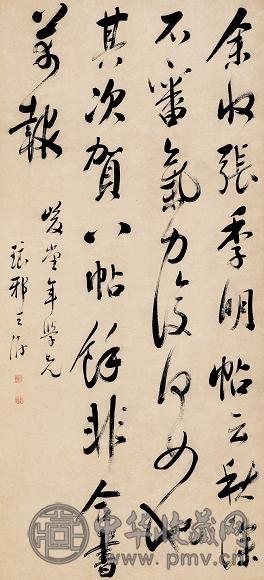 余收張季明帖云秋深
不審氣力復何如也
其次賀八帖餘非合書
報
堂年學兄
琅邪王澍
中华收藏网
www.pmv.cn